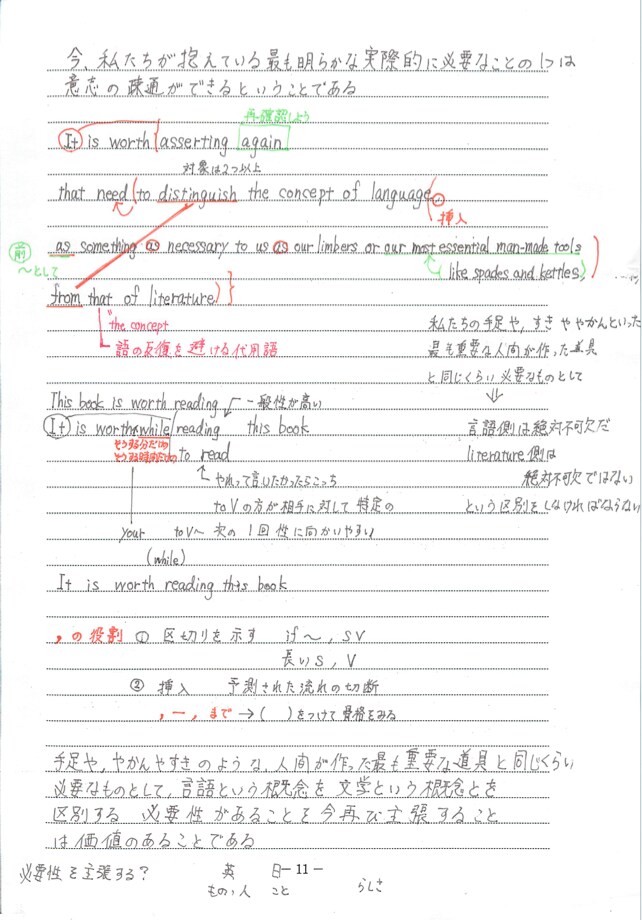 今、私たちが抱えている最も明らかな実際的に必要なことの1つは
意志の疎通ができるということである
再確認しよう
It is worth asserting again
対象は2つ以上
that need (to distinguish the concept of language,
挿入
前 ～として
as something as necessary to us as our limbers or our most essential man-made tools
(like spades and kettles,)
from that of literature)
"the concept
語の反復を避ける代用語
私たちの手足や,すきややかんといった
最も重要な人間が作った道具
と同じくらい必要なものとして
⇓
言語側は絶対不可欠だ
literature側は
絶対不可欠ではない
という区別をしなければならない
This book is worth reading 一般性が高い
It is worth while reading this book
そうする分だけの
そうする時間だけの
to read
やれって言いたかったらこっち
toVの方が相手に対して特定の
your toV～ 次の1回性に向かいやすい
(while)
It is worth reading this book
,の役割 ① 区切りを示す if～, SV
長いS, V
② 挿入 予測された流れの切断
, ー , まで→( )をつけて骨格をみる
手足や,やかんやすきのような,人間が作った最も重要な道具と同じくらい
必要なものとして,言語という概念を文学という概念とを
区別する 必要性があることを今再び主張すること
は価値のあることである
必要性を主張する?
英 日
- 11 -
もの,人 こと らしさ